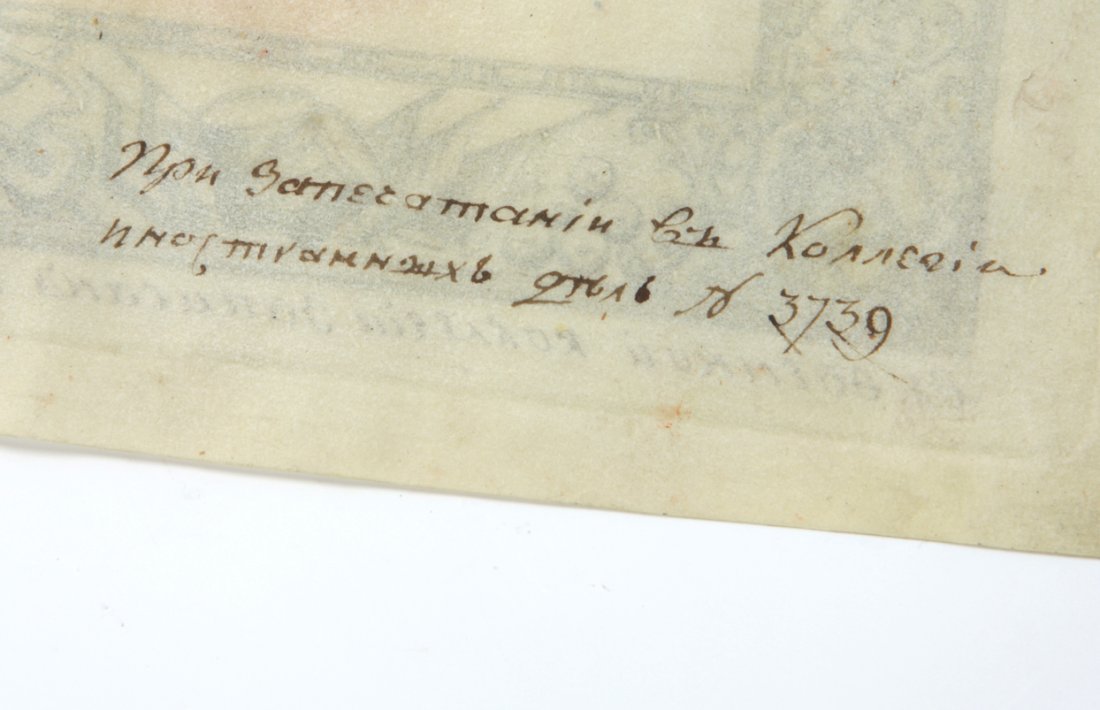 При запечатаніи въ Коллегіи
иностранныхъ дѣлъ № 3739